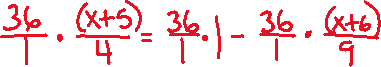 36/1 · (x+5)/4 = 36/1 · 1 - 36/1 · (x+6)/9